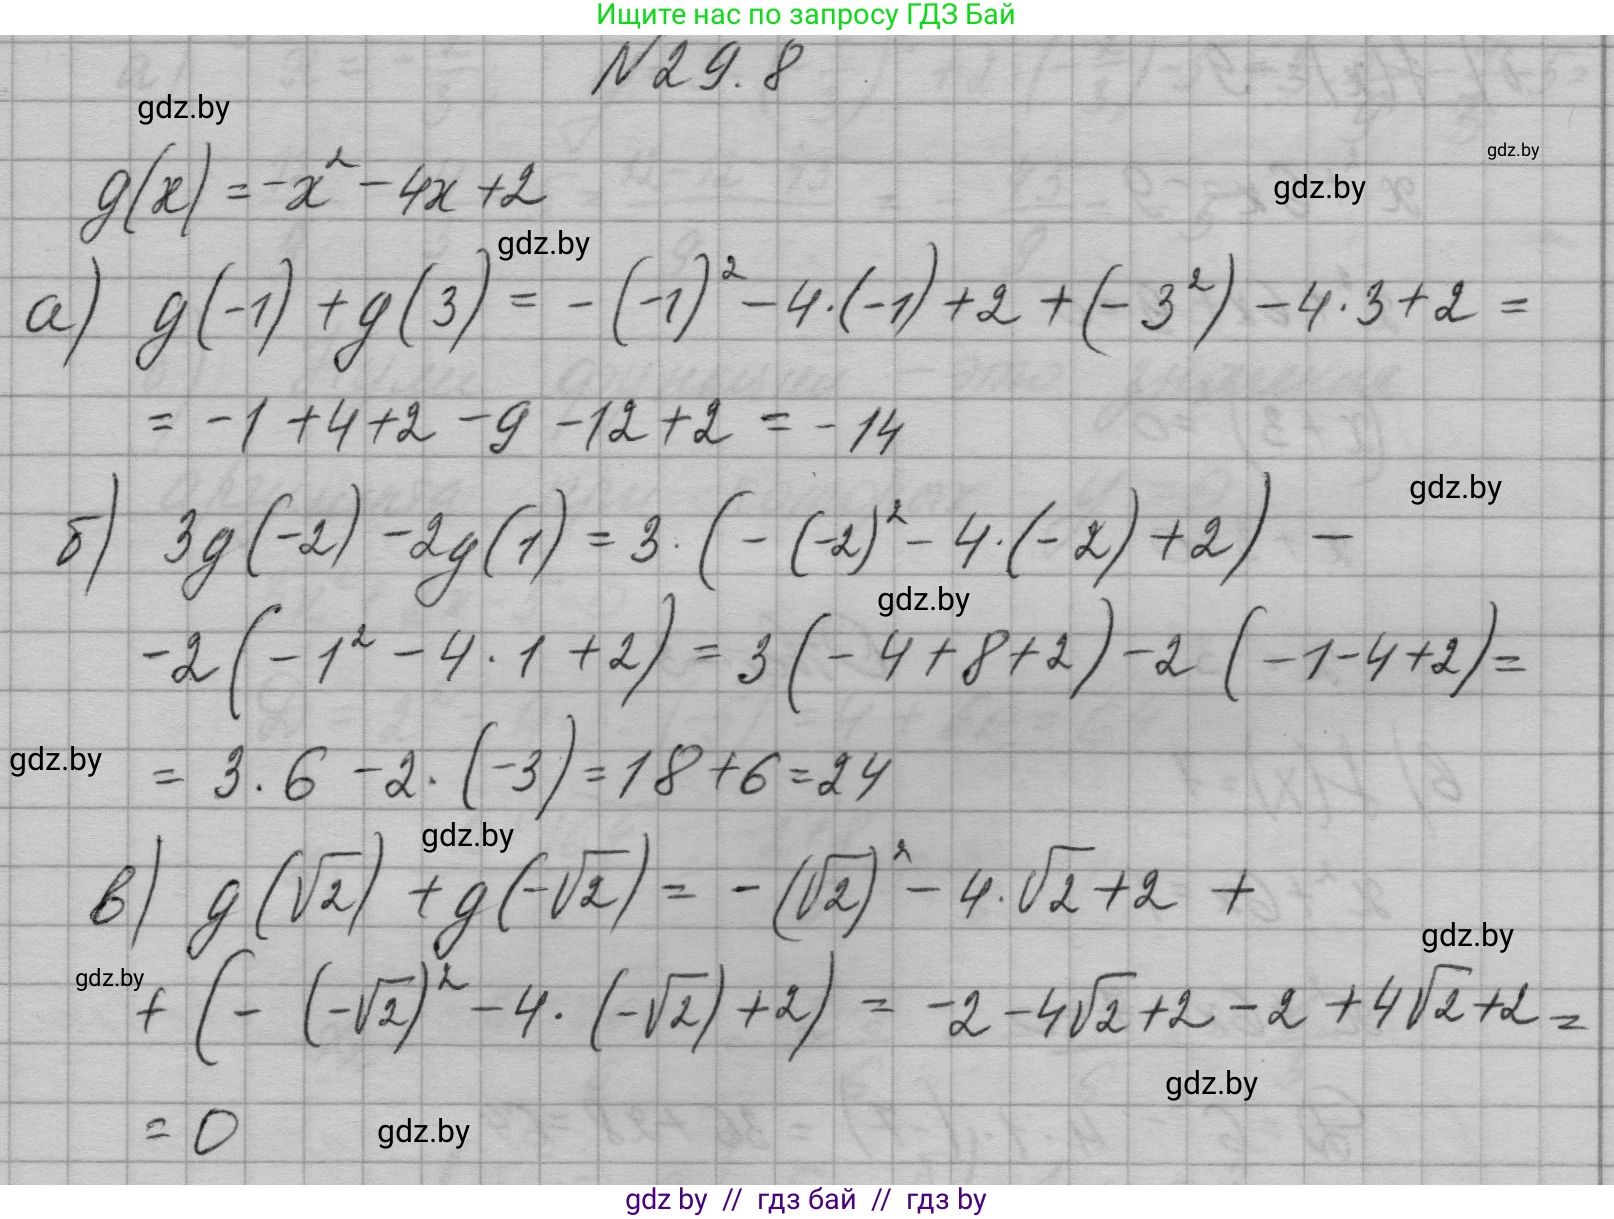 Ищите нас по запросу ГДЗ Бай
N29.8
gdz.by
gdz.by
g(x) = -x² - 4x + 2
gdz.by
gdz.by
а) g(-1) + g(3) = -(-1)² - 4·(-1) + 2 + (-3²) - 4·3 + 2 =
= -1 + 4 + 2 - 9 - 12 + 2 = -14
gdz.by
б) 3g(-2) - 2g(1) = 3·(-(-2)² - 4·(-2) + 2) -
gdz.by
-2(-1² - 4·1 + 2) = 3(-4 + 8 + 2) - 2(-1 - 4 + 2) =
gdz.by
= 3·6 - 2·(-3) = 18 + 6 = 24
gdz.by
в) g(√2) + g(-√2) = -(√2)² - 4·√2 + 2 +
gdz.by
gdz.by
+ (-(-√2)² - 4·(-√2) + 2) = -2 - 4√2 + 2 - 2 + 4√2 + 2 =
gdz.by
= 0
gdz.by
gdz by // гдз бай // гдз by